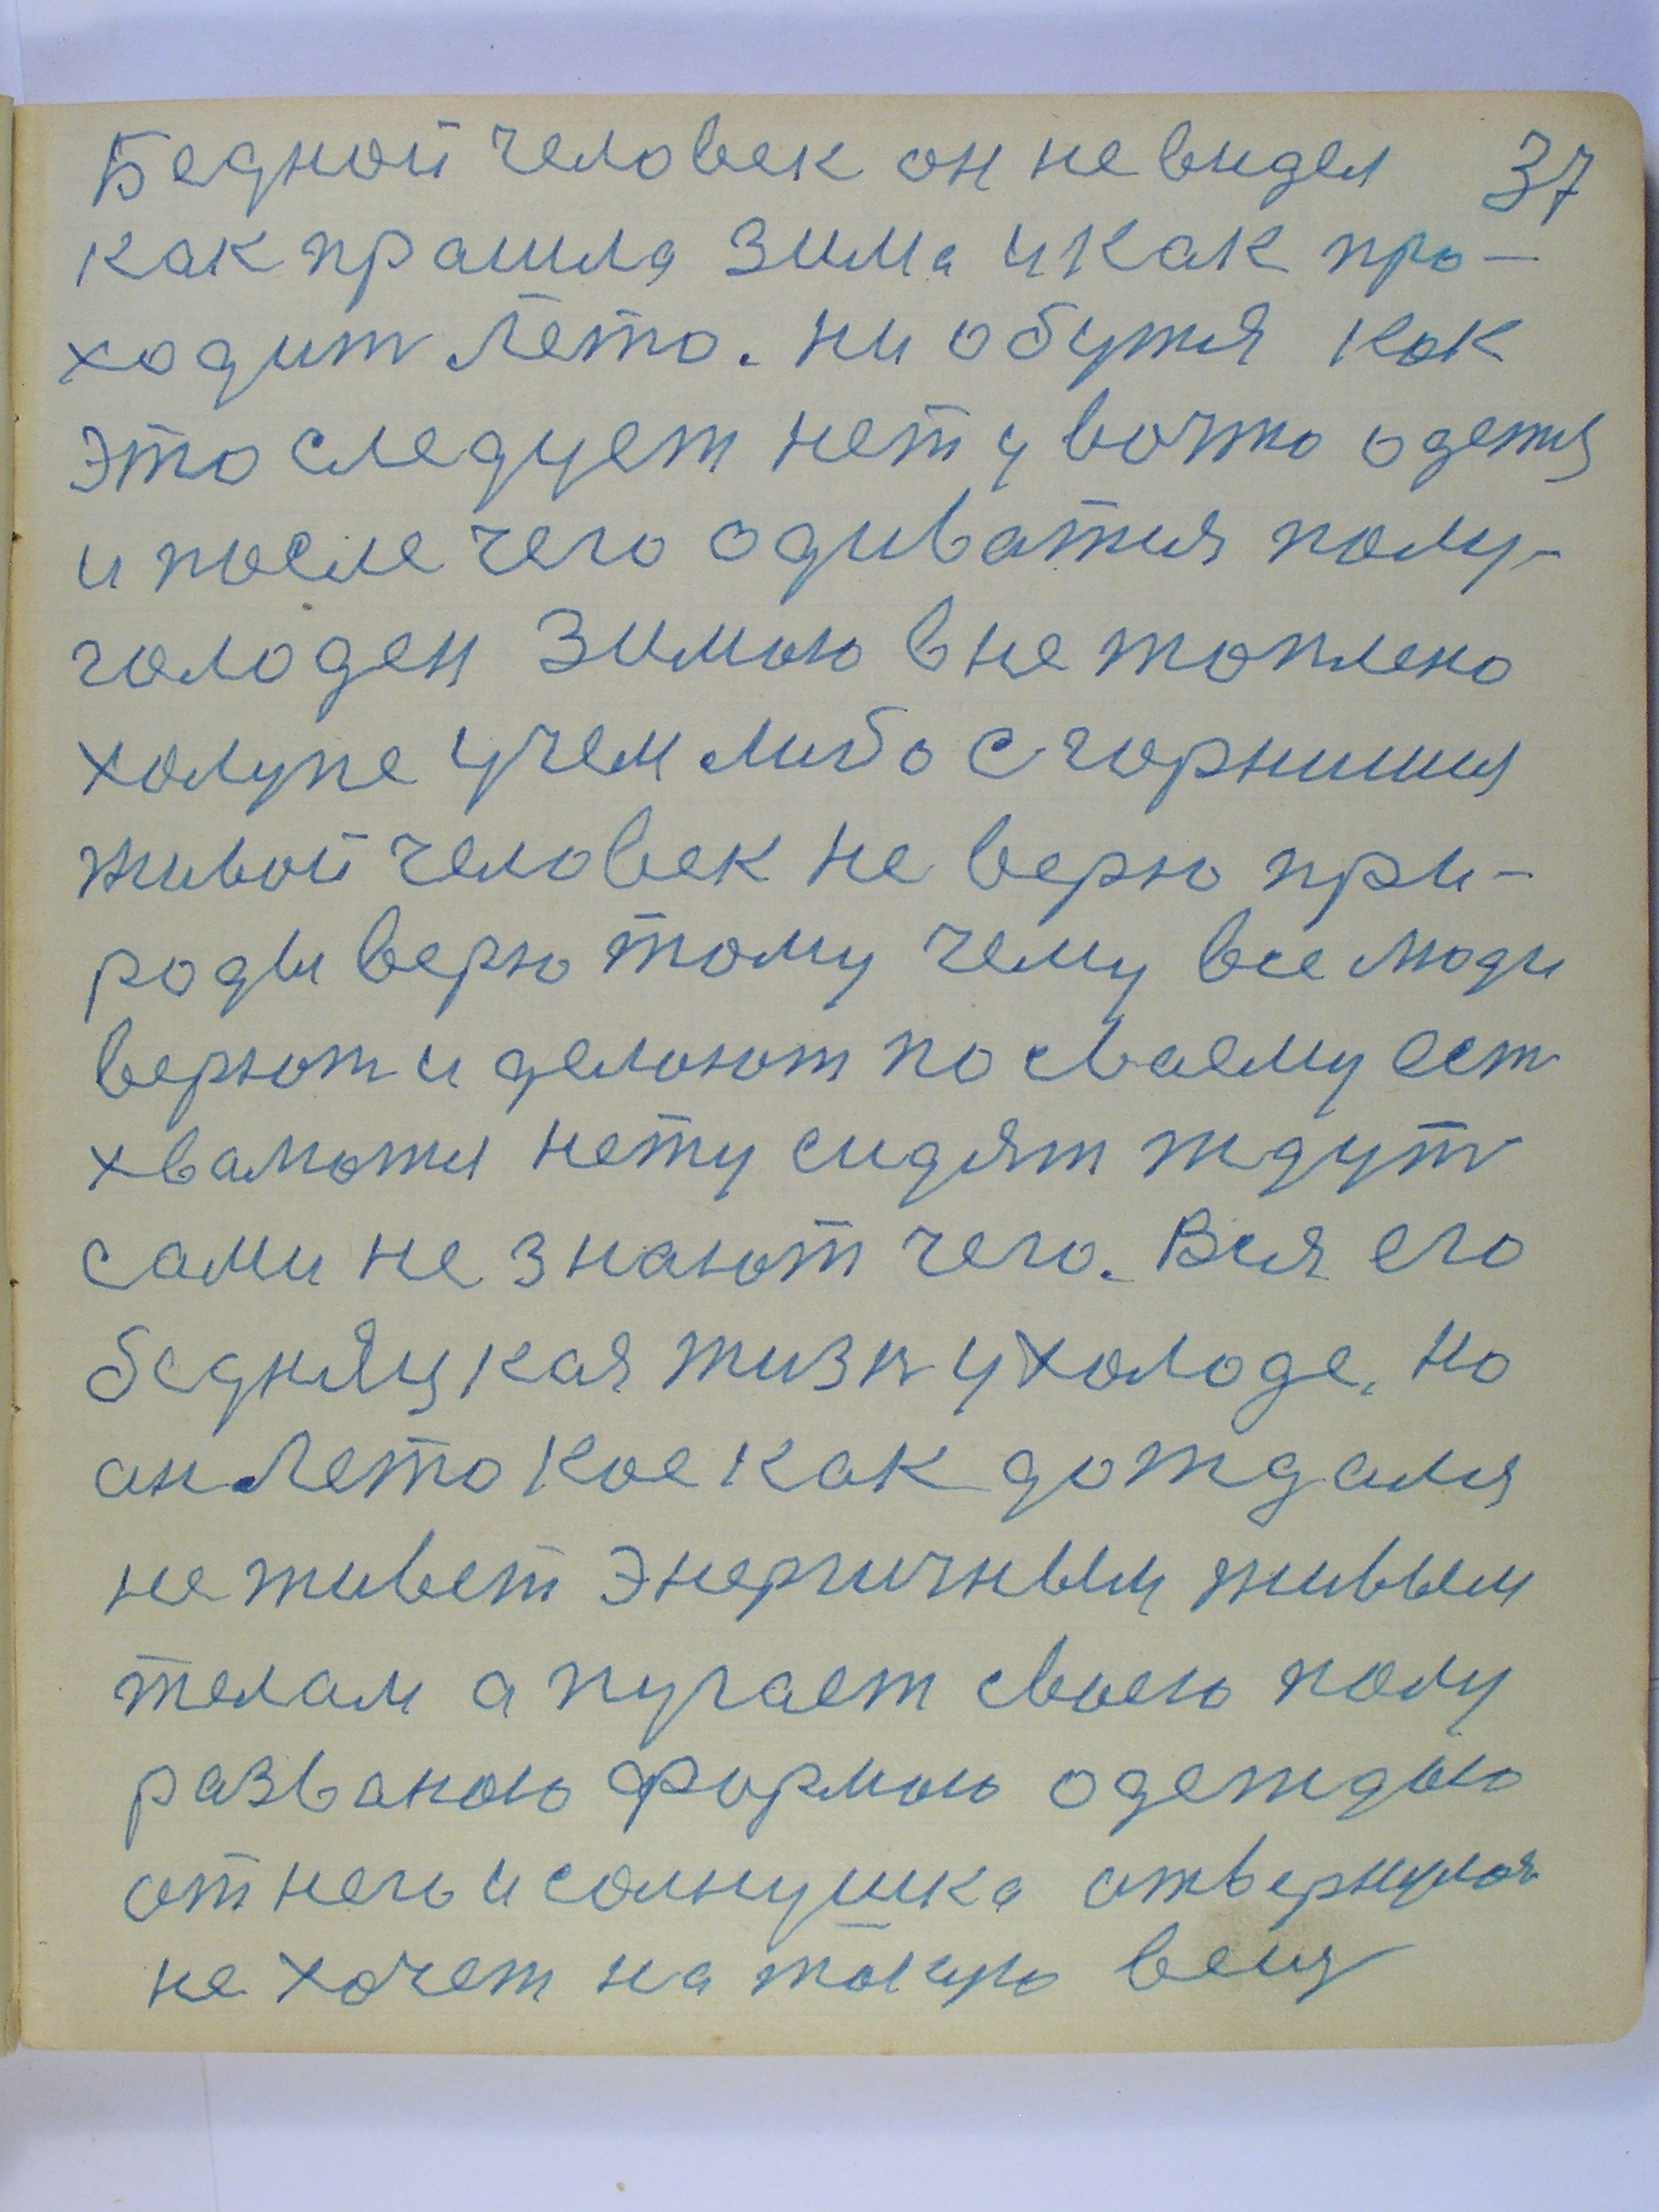 Бедной человек он не видел 37
как прашила зима и как про-
ходит Лето. Ни обутя как
это следует нет у вочто одетя
и после чего одиватся полу-
голоден Зимою в не топлено
халупе учем либо сгорнишия
живой человек не верю при-
роды верю тому чему все люди
верют и делоют по сваему ест
хватотя нету сидят ждут
сами не знают чего. Вся его
бедняцкая жизн у холоде, но
он Лето кое как дождался
не живет энергичным живым
телам а пугает своею полу
разваною формою одеждою
от него и солнушка отвернулоя
не хочет на такую вещ